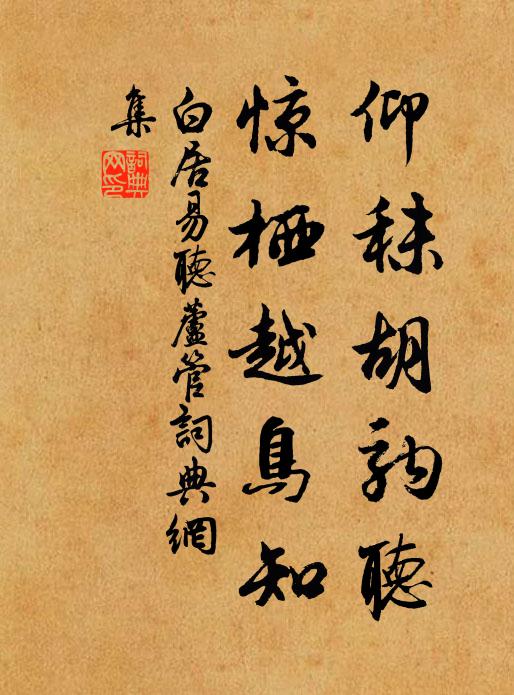 仰秣胡駒聽
惊栖越鳥知
白居易聽蘆管詞典網
集
詞典
网印